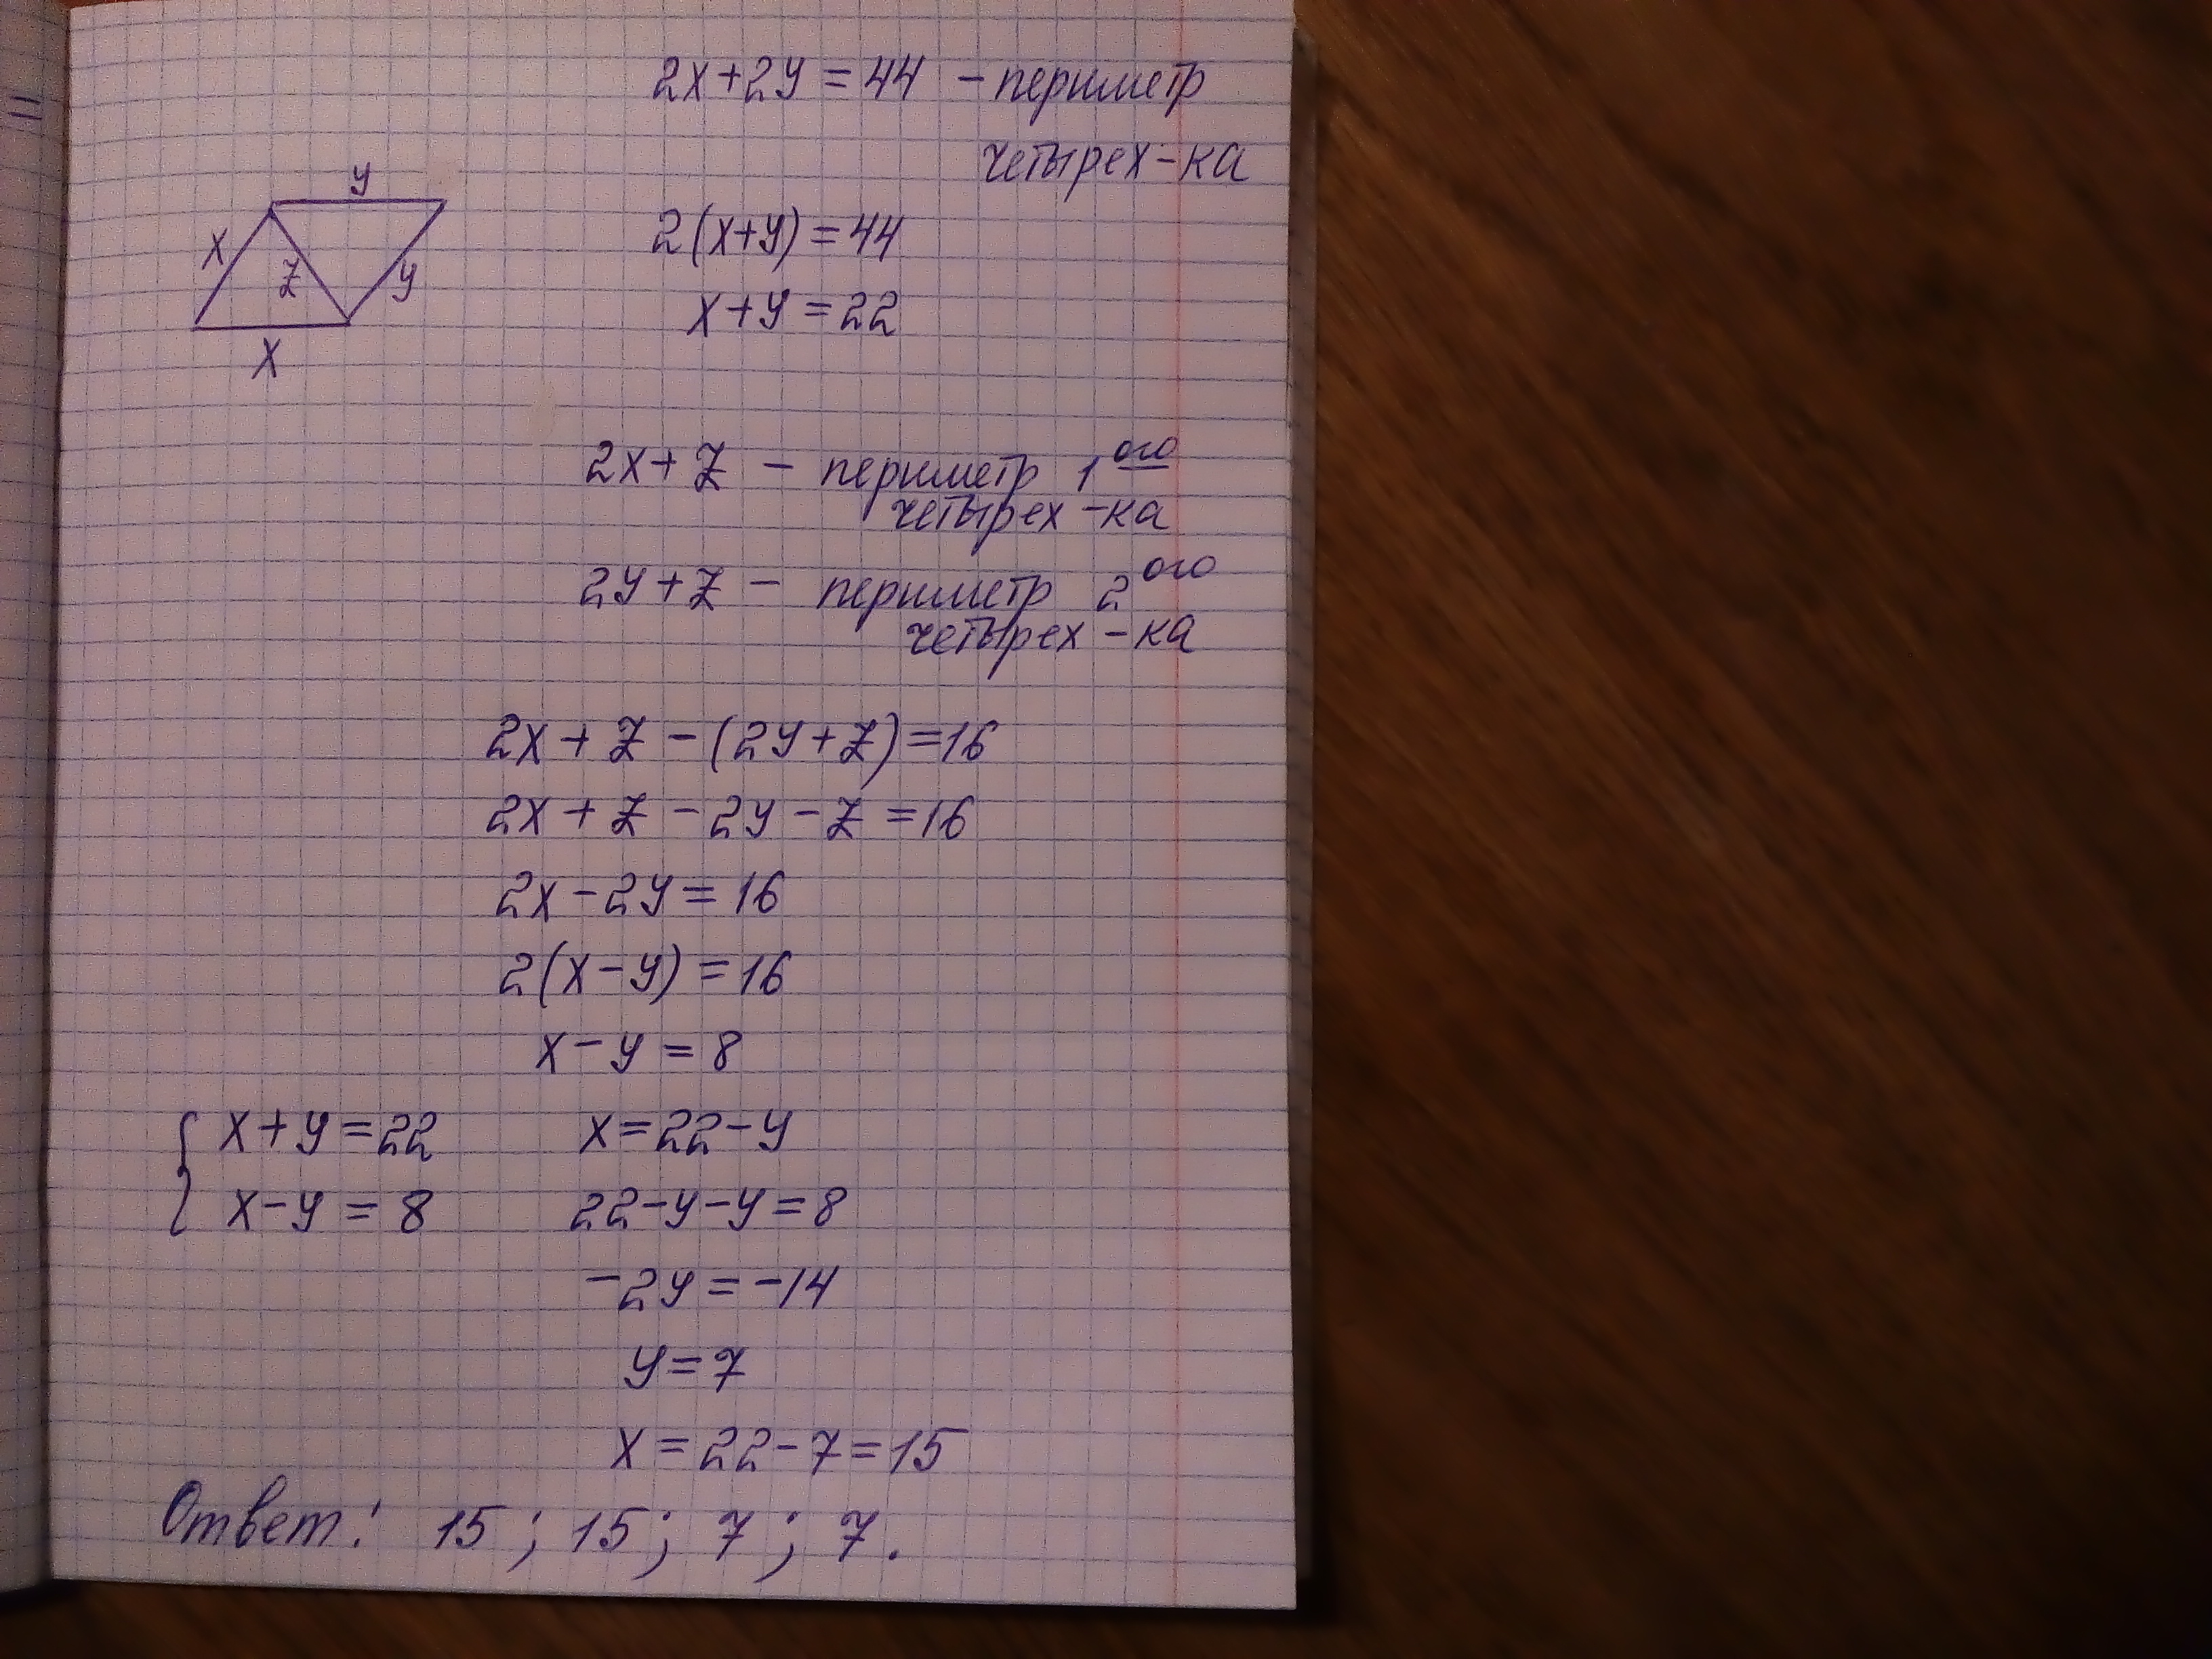 =
2x+2y=44 - периметр
четырех-ка
y
x
z
y
x
2(x+y)=44
x+y=22
2x+z - периметр 1ого
четырех-ка
2y+z - периметр 2ого
четырех-ка
2x+z-(2y+z)=16
2x+z-2y-z=16
2x-2y=16
2(x-y)=16
x-y=8
{ x+y=22 x=22-y
x-y=8 22-y-y=8
-2y=-14
y=7
x=22-7=15
Ответ: 15; 15; 7; 7.